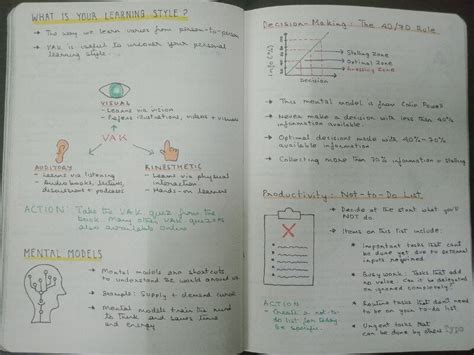 WHAT IS YOUR LEARNING STYLE?
→ The way we learn varies from person-to-person
→ VAK is useful to uncover your personal
learning style...
VISUAL
- Learns via vision
- Prefers illustrations, videos + visuals
VAK
AUDITORY
- Learns via listening
- Audio books, lectures,
discussions + podcasts
KINESTHETIC
- Learns via physical
interaction
- Hands-on learners
ACTION: Take the VAK quiz from the
book. Many other VAK quizzes
also available online
MENTAL MODELS
→ Mental models are shortcuts
to understand the world around us
→ Example: Supply + demand curve
→ Mental models train the mind
to think and saves time
and energy
Decision-Making: The 40/70 Rule
Info (%)
Decision
→ Stalling Zone
→ Optimal Zone
→ Guessing Zone
→ This mental model is from Colin Powell
→ Never make a decision with less than 40%
information available
→ Optimal decisions made with 40%-70%
available information
→ Collecting more than 70% information = stalling
Productivity: Not-to-Do List
→ Decide at the start what you'll
NOT do
→ Items on this list include:
→ Important tasks that can't
be done yet due to external
inputs required
→ Busy work: Tasks that add
no value. Can it be delegated
or ignored completely?
→ Routine tasks that don't need
to be on your to-do list
→ Urgent tasks that
can be done by others
ACTION
- Create a not-to-
do list for today
Be specific.